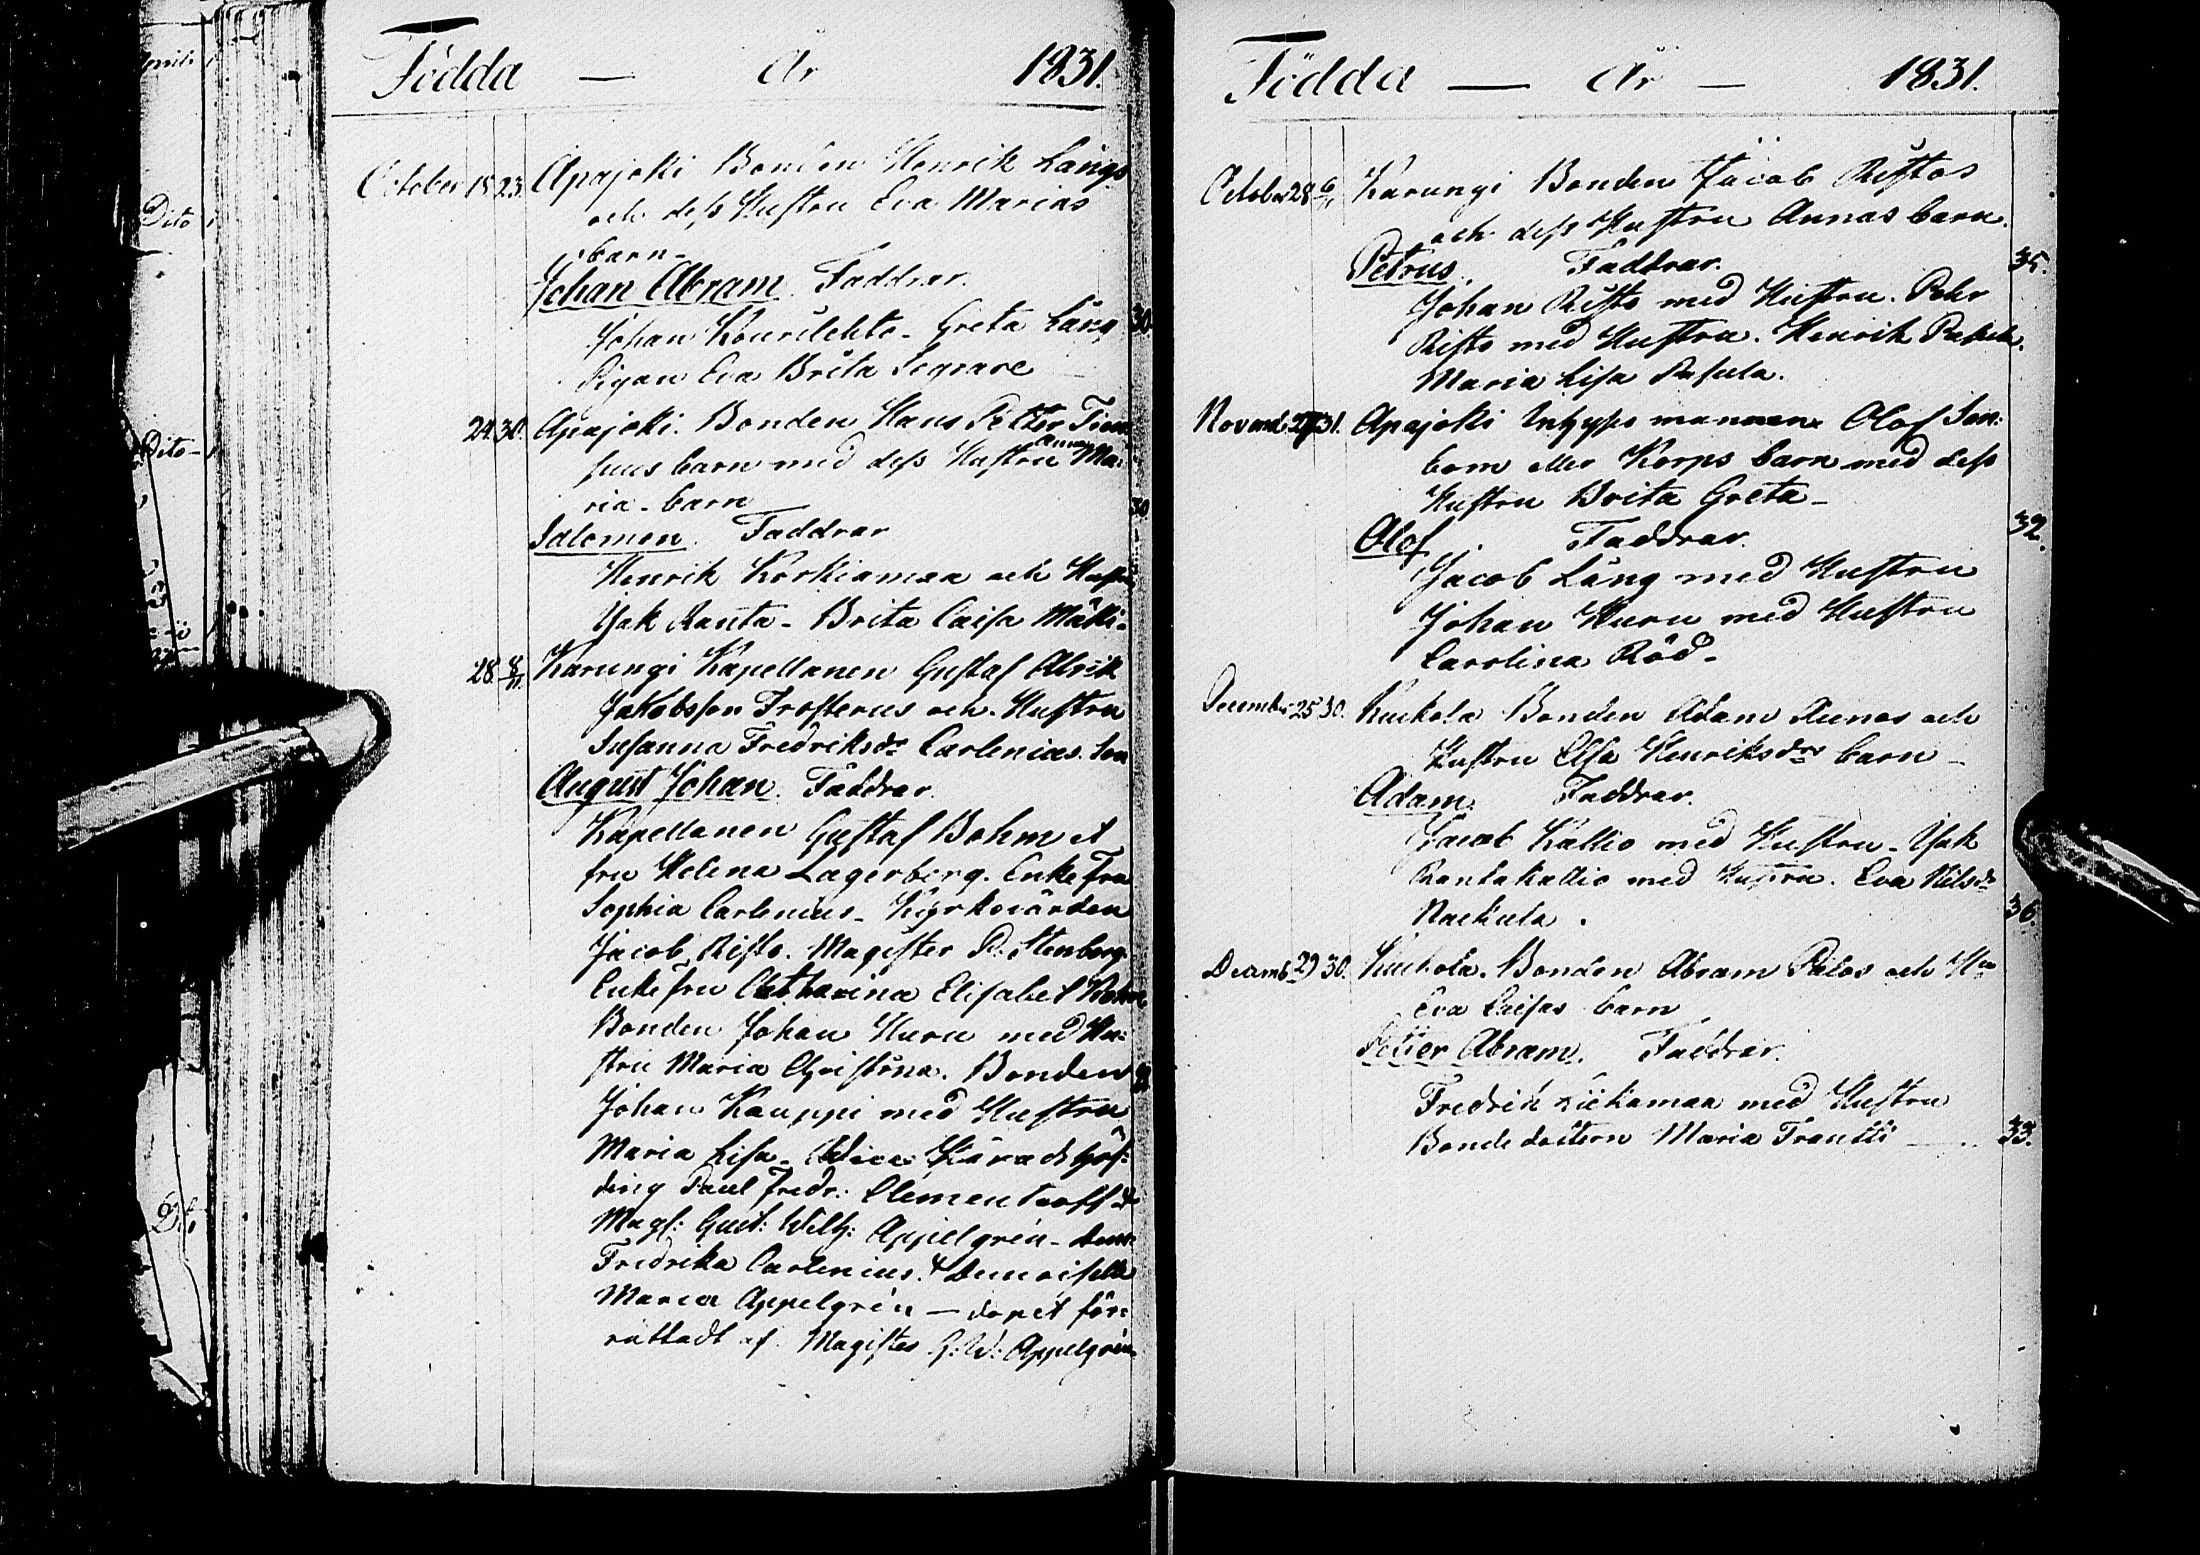 Födda — År 1831.
October 18 23. Apajoki Bonden Henrik Längs
och dess Hustru Eva Marias
barn -
Johan Abram. Faddrar. 30.
Johan Kourilehto - Greta Läng
Pigan Eva Brita Segrare
24 30. Apajoki. Bonden Hans Petter
barn med dess Hustru Anna Ma:
ria - barn 30.
Salomon. Faddrar
Henrik Korkiamaa och Hustru
Isak Ranta - Brita Caisa Mäki -
28 8/11. Karungi Kapellanen Gustaf Abr:
Jakobsson Frosterus och Hustru
Susanna Fredriksdr Carlenius. Son
August Johan. Faddrar.
Kapellanen Gustaf Bohm et
fru Helena Lagerberg. Enke Fru
Sophia Carlenius - Kyrkovärden
Jacob Risto. Magister P. Stenborg.
Enke fru Catharina Elisabet Bohm
Bonden Johan Huru med Hu:
stru Maria Christina. Bonden
Johan Kauppi med Hustru
Maria Lisa - Vice Häradshöf:
ding Paul Fredr: Clementeoff &
Mags: Gust: Wilh: Appelgrén - Dem:
Fredrika Carlenius. & Demoiselle
Maria Appelgrén — dopet för:
rättadt af Magister G: W: Appelgrén
Födda — År — 1831.
October 28 6/11 Karungi Bonden Jacob Ristos
och dess Hustru Annas barn.
Petrus. Faddrar. 35.
Johan Risto med Hustru. Pehr
Risto med Hustru. Henrik
Maria Lisa Pasula.
Novemb 27 31. Apajoki Inhyses mannen Olof Sen:
bom eller Korps barn med dess
Hustru Brita Greta -
Olof Faddrar. 32.
Jacob Läng med Hustru
Johan Huru med Hustru
Carolina Röd -
December 25 30. Kuckola Bonden Adam Runos och
Hustru Elsa Henriksdrs barn -
Adam. Faddrar.
Jacob Kallio med Hustru - Isak
Rantakallio med Hustru. Eva Nilsdr
Raekula. 36.
Decemb 29 30. Kuckola. Bonden Abram Palos och Hu
Eva Caisas barn
Petter Abram. Faddrar.
Fredrik Kiekamaa med Hustru
Bondedottern Maria Frantti — .. 33.